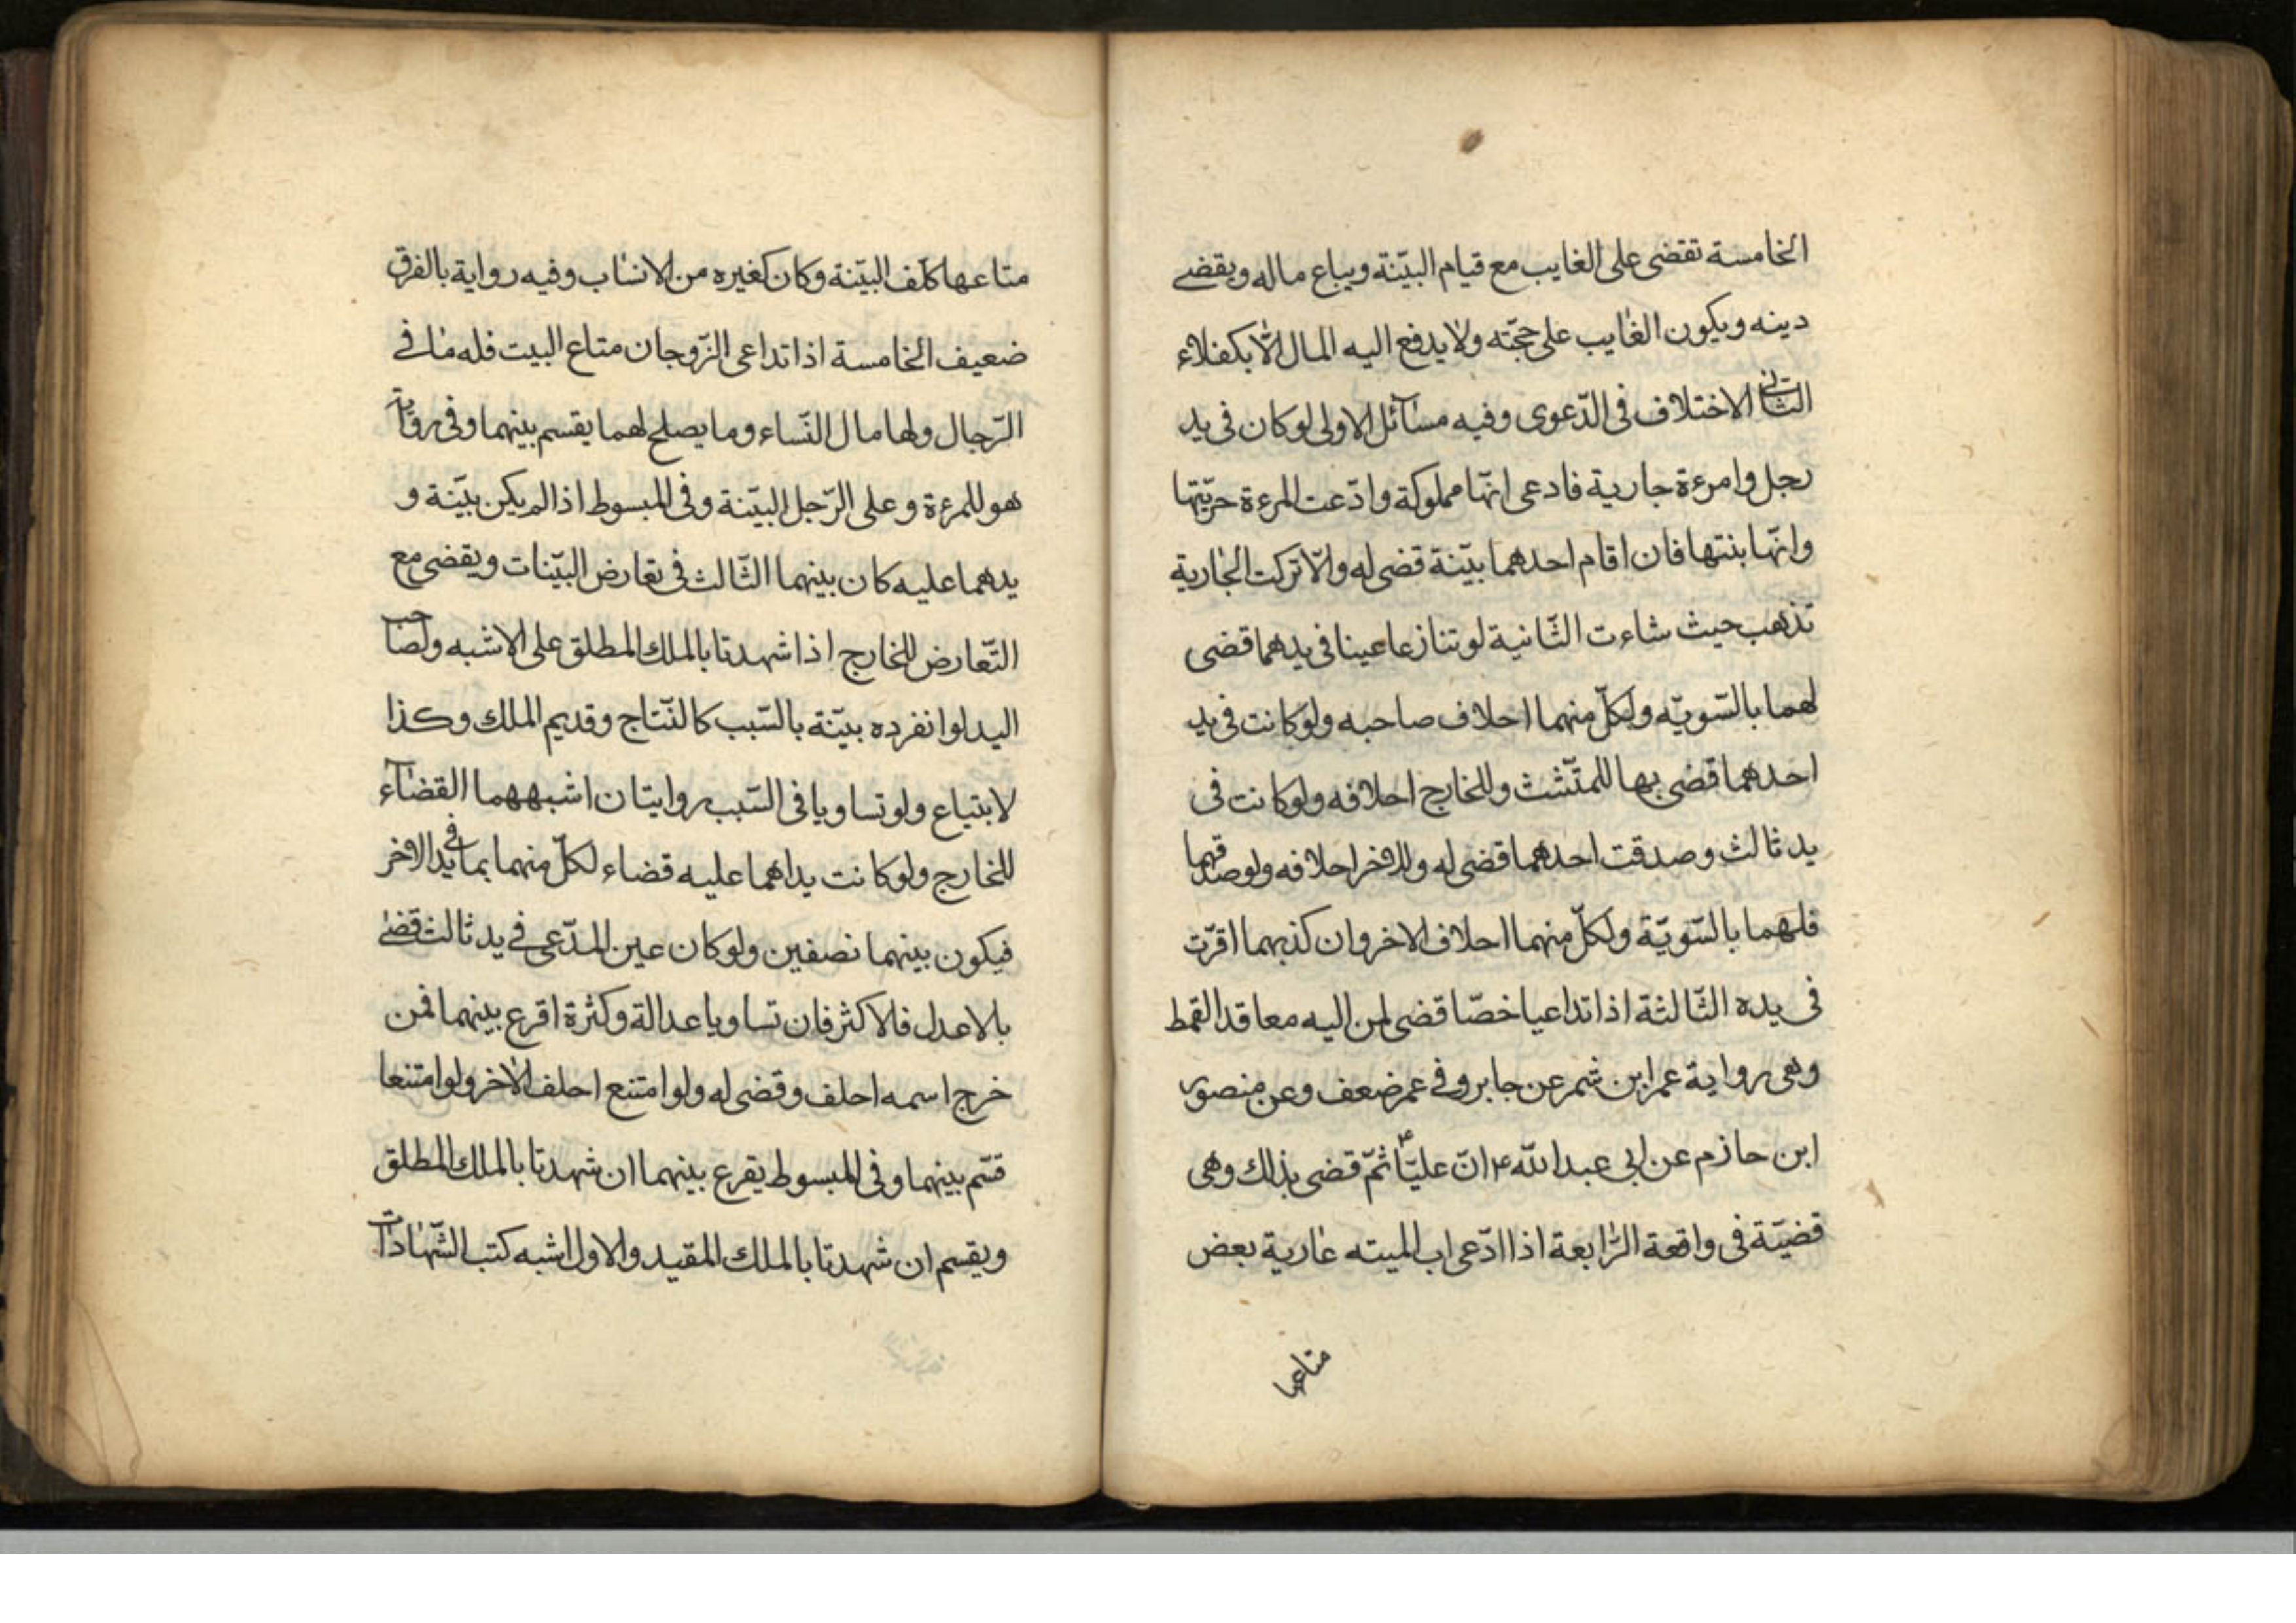 الخامسة تقضى على الغايب مع قيام البيّنة ويباع ماله ويقضے
دينه ويكون الغايب على حجّته ولا يدفع اليه المال الّا بكفلاء
الثانى الاختلاف فى الدّعوى وفيه مسائل الاولى لو كان فى يد
رجل وامرءة جارية فادعى انّها مملوكة وادّعت المرءة حرّيتها
وانّها بنتها فان اقام احدهما بيّنة قضى له والّا تركت الجارية
تذهب حيث شاءت الثّانية لو تنازعا عينا فى يدهما قضى
لهما بالسّويّه ولكلّ منهما احلاف صاحبه ولو كانت فى يد
احدهما قضى بها للمتشث وللخارج احلافه ولو كانت فى
يد ثالث وصدقت احدهما قضى له وللاخر احلافه ولو صدقهما
فلهما بالسّويّة ولكلّ منهما احلاف الاخر وان كذبهما اقرّت
فى يده الثّالثة اذا تداعيا خصّا قضى لمن اليه معاقد القمط
وهى رواية عمر ابن شمر عن جابر وفے عمر ضعف وعن منصور
ابن حازم عن ابى عبد الله ع انّ عليّا ثمّ قضى بذلك وهى
قضيّة فى واقعة الرّابعة اذا ادّعى اب الميته عارية بعض
متاعها
متاعها كلّف البيّنة وكان كغيره من الانساب وفيه رواية بالفرق
ضعيف الخامسة اذا تداعى الزّوجان متاع البيت فله ما فے
الرّجال ولها مال النّساء وما يصلح لهما يقسم بينهما وفى رواية
هو للمرءة وعلى الرّجل البيّنة وفى المبسوط اذا لم يكن بيّنة و
يدهما عليه كان بينهما الثّالث فى تعارض البيّنات ويقضى مع
التّعارض للخارج اذا شهدتا بالملك المطلق على الاشبه ولصاحب
اليد لو انفرده بيّنة بالسّبب كالنّتاج وقديم الملك وكذا
لابتياع ولو تساويا فى السّبب روايتان اشبههما القضاء
للخارج ولو كانت يداهما عليه قضاء لكلّ منهما بما فى يد الاخر
فيكون بينهما نصفين ولو كان عين المدّعى فے يد ثالث قضے
بلاعدل فلاكثر فان تساويا عدالة وكثرة اقرع بينهما فمن
خرج اسمه احلف وقضى له ولو امتنع احلف الاخر ولو امتنعا
قسّم بينهما وفى المبسوط يقرع بينهما ان شهدتا بالملك المطلق
ويقسم ان شهدتا بالملك المقيد والاول اشبه كتب الشّهادات